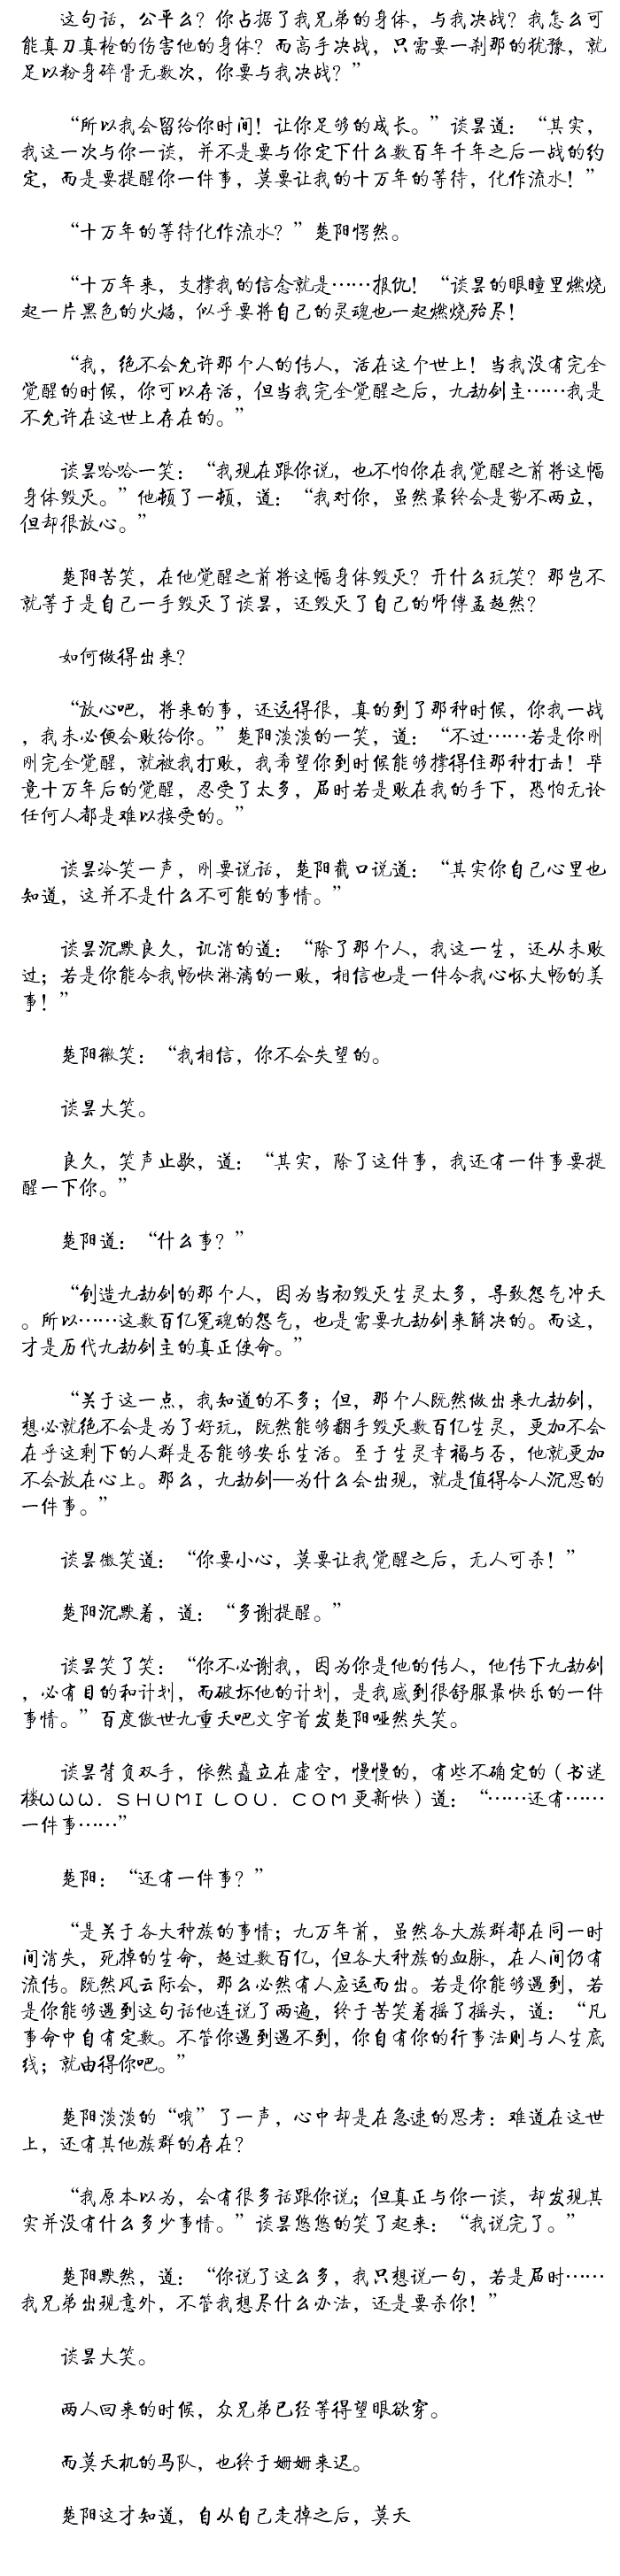 这句话，公平么？你占据了我兄弟的身体，与我决战？我怎么可
能真刀真枪的伤害他的身体？而高手决战，只需要一刹那的犹豫，就
足以粉身碎骨无数次，你要与我决战？”
“所以我会留给你时间！让你足够的成长。”谈昙道：“其实，
我这一次与你一谈，并不是要与你定下什么数百年千年之后一战的约
定，而是要提醒你一件事，莫要让我的十万年的等待，化作流水！”
“十万年的等待化作流水？”楚阳愕然。
“十万年来，支撑我的信念就是……报仇！“谈昙的眼瞳里燃烧
起一片黑色的火焰，似乎要将自己的灵魂也一起燃烧殆尽！
“我，绝不会允许那个人的传人，活在这个世上！当我没有完全
觉醒的时候，你可以存活，但当我完全觉醒之后，九劫剑主……我是
不允许在这世上存在的。”
谈昙哈哈一笑：“我现在跟你说，也不怕你在我觉醒之前将这幅
身体毁灭。”他顿了一顿，道：“我对你，虽然最终会是势不两立，
但却很放心。”
楚阳苦笑，在他觉醒之前将这幅身体毁灭？开什么玩笑？那岂不
就等于是自己一手毁灭了谈昙，还毁灭了自己的师傅孟超然？
如何做得出来？
“放心吧，将来的事，还远得很，真的到了那种时候，你我一战
，我未必便会败给你。”楚阳淡淡的一笑，道：“不过……若是你刚
刚完全觉醒，就被我打败，我希望你到时候能够撑得住那种打击！毕
竟十万年后的觉醒，忍受了太多，届时若是败在我的手下，恐怕无论
任何人都是难以接受的。”
谈昙冷笑一声，刚要说话，楚阳截口说道：“其实你自己心里也
知道，这并不是什么不可能的事情。”
谈昙沉默良久，讥消的道：“除了那个人，我这一生，还从未败
过；若是你能令我畅快淋漓的一败，相信也是一件令我心怀大畅的美
事！”
楚阳微笑：“我相信，你不会失望的。
谈昙大笑。
良久，笑声止歇，道：“其实，除了这件事，我还有一件事要提
醒一下你。”
楚阳道：“什么事？”
“创造九劫剑的那个人，因为当初毁灭生灵太多，导致怨气冲天
。所以……这数百亿冤魂的怨气，也是需要九劫剑来解决的。而这，
才是历代九劫剑主的真正使命。”
“关于这一点，我知道的不多；但，那个人既然做出来九劫剑，
想必就绝不会是为了好玩，既然能够翻手毁灭数百亿生灵，更加不会
在乎这剩下的人群是否能够安乐生活。至于生灵幸福与否，他就更加
不会放在心上。那么，九劫剑—为什么会出现，就是值得令人沉思的
一件事。”
谈昙微笑道：“你要小心，莫要让我觉醒之后，无人可杀！”
楚阳沉默着，道：“多谢提醒。”
谈昙笑了笑：“你不必谢我，因为你是他的传人，他传下九劫剑
，必有目的和计划，而破坏他的计划，是我感到很舒服最快乐的一件
事情。”百度傲世九重天吧文字首发楚阳哑然失笑。
谈昙背负双手，依然矗立在虚空，慢慢的，有些不确定的（书迷
楼ＷＷＷ．ＳＨＵＭＩＬＯＵ．ＣＯＭ更新快）道：“……还有……
一件事……”
楚阳：“还有一件事？”
“是关于各大种族的事情；九万年前，虽然各大族群都在同一时
间消失，死掉的生命，超过数百亿，但各大种族的血脉，在人间仍有
流传。既然风云际会，那么必然有人应运而出。若是你能够遇到，若
是你能够遇到这句话他连说了两遍，终于苦笑着摇了摇头，道：“凡
事命中自有定数。不管你遇到遇不到，你自有你的行事法则与人生底
线；就由得你吧。”
楚阳淡淡的“哦”了一声，心中却是在急速的思考：难道在这世
上，还有其他族群的存在？
“我原本以为，会有很多话跟你说；但真正与你一谈，却发现其
实并没有什么多少事情。”谈昙悠悠的笑了起来：“我说完了。”
楚阳默然，道：“你说了这么多，我只想说一句，若是届时……
我兄弟出现意外，不管我想尽什么办法，还是要杀你！”
谈昙大笑。
两人回来的时候，众兄弟已经等得望眼欲穿。
而莫天机的马队，也终于姗姗来迟。
楚阳这才知道，自从自己走掉之后，莫天